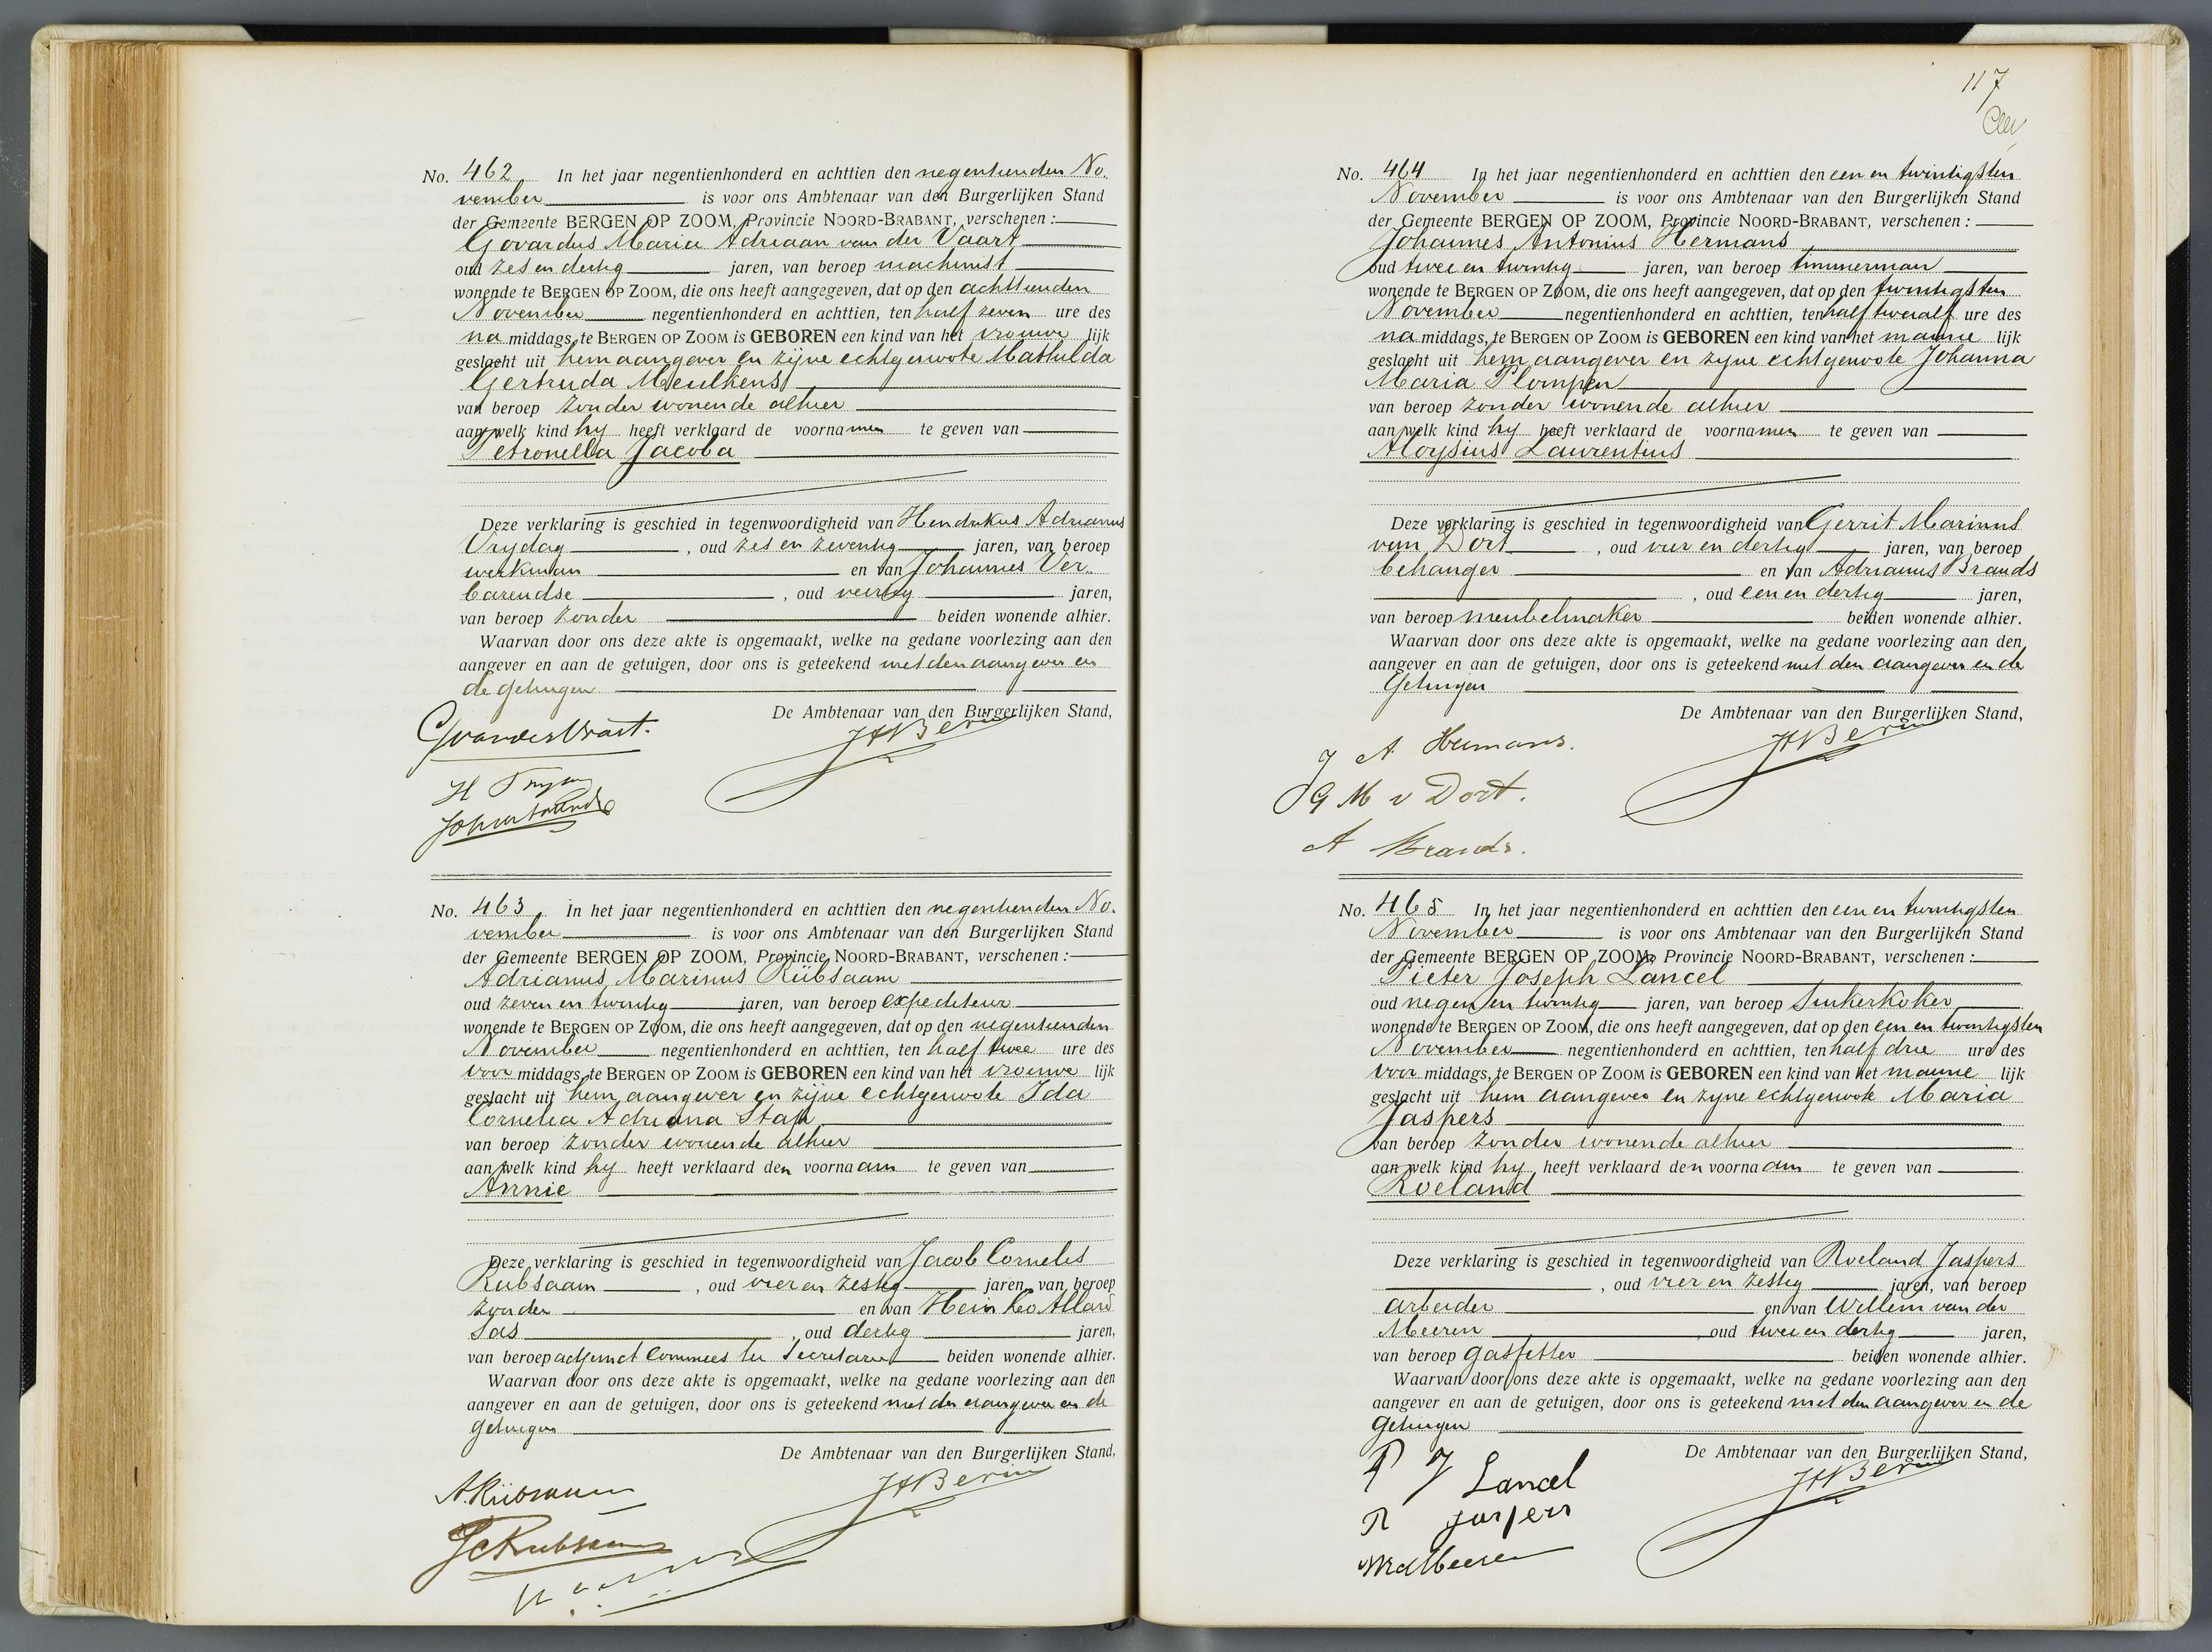 No. 462 In het jaar negentienhonderd en achttien den negentienden No-
vember is voor ons Ambtenaar van den Burgerlijken Stand
der Gemeente BERGEN OP ZOOM, Provincie NOORD-BRABANT, verschenen:
Govardus Maria Adriaan van der Vaart
oud zes en dertig jaren, van beroep machinist
wonende te BERGEN OP ZOOM, die ons heeft aangegeven, dat op den achttienden
November negentienhonderd en achttien, ten half zeven ure des
na middags, te BERGEN OP ZOOM is GEBOREN een kind van het vrouwe lijk
geslacht uit hem aangever en zijne echtgenoote Mathilda
Gertruda Meulkens
van beroep zonder wonende alhier
aan welk kind hy heeft verklaard de voornamen te geven van
Petronella Jacoba
Deze verklaring is geschied in tegenwoordigheid van Hendrikus Adrianus
Vrydag, oud zes en zeventig jaren, van beroep
werkman en van Johannes Ver-
barendse, oud veertig jaren,
van beroep zonder beiden wonende alhier.
Waarvan door ons deze akte is opgemaakt, welke na gedane voorlezing aan den
aangever en aan de getuigen, door ons is geteekend met den aangever en
de getuigen
De Ambtenaar van den Burgerlijken Stand,
GvanderVaart.
No. 463 In het jaar negentienhonderd en achttien den negentienden No-
vember is voor ons Ambtenaar van den Burgerlijken Stand
der Gemeente BERGEN OP ZOOM, Provincie NOORD-BRABANT, verschenen:
Adrianus Marinus Rübsaam
oud zeven en twintig jaren, van beroep expediteur
wonende te BERGEN OP ZOOM, die ons heeft aangegeven, dat op den negentienden
November negentienhonderd en achttien, ten half twee ure des
voor middags, te BERGEN OP ZOOM is GEBOREN een kind van het vrouwe lijk
geslacht uit hem aangever en zijne echtgenoote Ida
Cornelia Adriana Stap
van beroep zonder wonende alhier
aan welk kind hy heeft verklaard den voornaam te geven van
Annie
Deze verklaring is geschied in tegenwoordigheid van Jacob Cornelis
Rübsaam, oud vier en zestig jaren, van beroep
zonder en van Hein Leo Allard
Sas, oud dertig jaren,
van beroep adjunct Commies ter Secretarie beiden wonende alhier.
Waarvan door ons deze akte is opgemaakt, welke na gedane voorlezing aan den
aangever en aan de getuigen, door ons is geteekend met den aangever en de
getuigen
De Ambtenaar van den Burgerlijken Stand,
A.Rübsaam
JCRubsaam
117
No. 464 In het jaar negentienhonderd en achttien den een en twintigsten
November is voor ons Ambtenaar van den Burgerlijken Stand
der Gemeente BERGEN OP ZOOM, Provincie NOORD-BRABANT, verschenen:
Johannes Antonius Hermans
oud twee en twintig jaren, van beroep timmerman
wonende te BERGEN OP ZOOM, die ons heeft aangegeven, dat op den twintigsten
November negentienhonderd en achttien, ten half twaalf ure des
na middags, te BERGEN OP ZOOM is GEBOREN een kind van het manne lijk
geslacht uit hem aangever en zyne echtgenoote Johanna
Maria Plompen
van beroep zonder wonende alhier
aan welk kind hy heeft verklaard de voornamen te geven van
Aloysius Laurentius
Deze verklaring is geschied in tegenwoordigheid van Gerrit Marinus
van Dort, oud vier en dertig jaren, van beroep
behanger en van Adrianus Brands
, oud een en dertig jaren,
van beroep meubelmaker beiden wonende alhier.
Waarvan door ons deze akte is opgemaakt, welke na gedane voorlezing aan den
aangever en aan de getuigen, door ons is geteekend met den aangever en de
getuigen
De Ambtenaar van den Burgerlijken Stand,
J A Hermans.
G M v Dort.
A Brands.
No. 465 In het jaar negentienhonderd en achttien den een en twintigsten
November is voor ons Ambtenaar van den Burgerlijken Stand
der Gemeente BERGEN OP ZOOM, Provincie NOORD-BRABANT, verschenen:
Pieter Joseph Lancel
oud negen en twintig jaren, van beroep Suikerkoker
wonende te BERGEN OP ZOOM, die ons heeft aangegeven, dat op den een en twintigsten
November negentienhonderd en achttien, ten half drie ure des
voor middags, te BERGEN OP ZOOM is GEBOREN een kind van het manne lijk
geslacht uit hem aangever en zyne echtgenoote Maria
Jaspers
van beroep zonder wonende alhier
aan welk kind hy heeft verklaard den voornaam te geven van
Roeland
Deze verklaring is geschied in tegenwoordigheid van Roeland Jaspers
, oud vier en zestig jaren, van beroep
arbeider en van Willem van der
Meeren, oud twee en dertig jaren,
van beroep gasfitter beiden wonende alhier.
Waarvan door ons deze akte is opgemaakt, welke na gedane voorlezing aan den
aangever en aan de getuigen, door ons is geteekend met den aangever en de
getuigen
De Ambtenaar van den Burgerlijken Stand,
P J Lancel
R jaspers
WvdMeeren